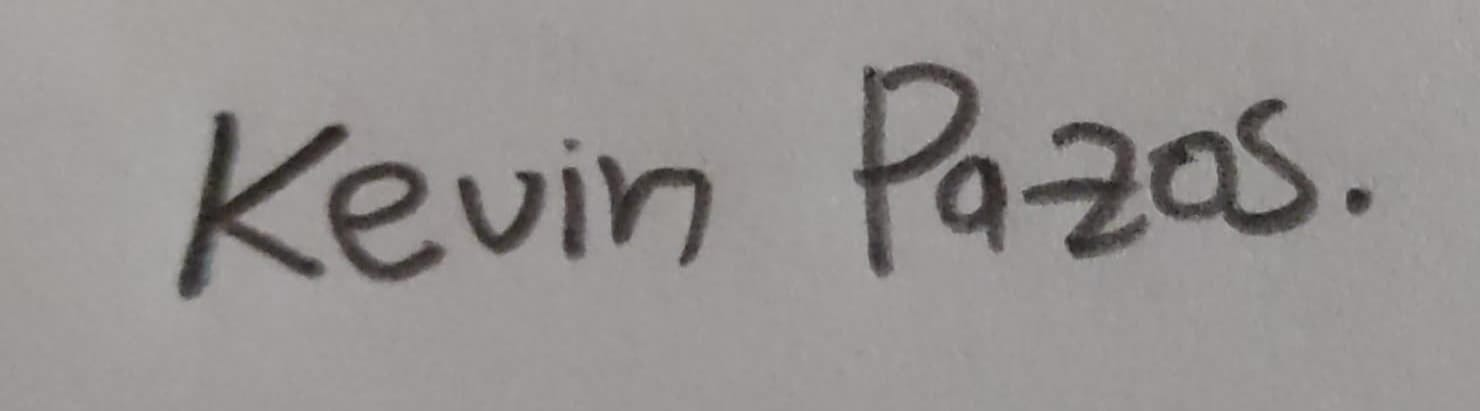 Kevin Pazos.